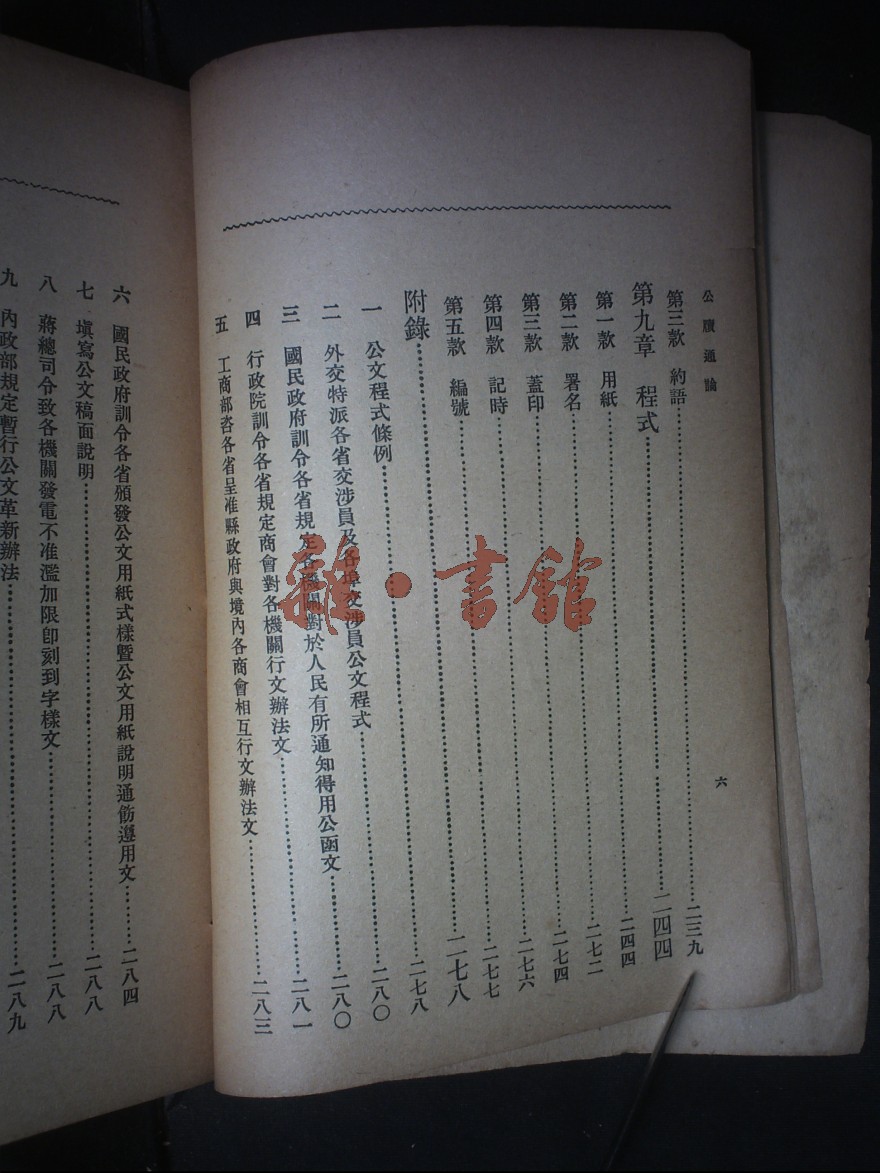 公牘通論 六
第三款 約語……二三九
第九章 程式……二四四
第一款 用紙……二四四
第二款 署名……二七二
第三款 蓋印……二七四
第四款 記時……二七六
第五款 編號……二七七
附錄……二七八
一 公文程式條例……二七八
二 外交特派各省交涉員及各埠交涉員公文程式……二八〇
三 國民政府訓令各省規定各機關對於人民有所通知得用公函文……二八〇
四 行政院訓令各省規定商會對各機關行文辦法文……二八一
五 工商部咨各省呈准縣政府與境內各商會相互行文辦法文……二八三
六 國民政府訓令各省頒發公文用紙式樣暨公文用紙說明通飭遵用文……二八四
七 填寫公文稿面說明……二八八
八 蔣總司令致各機關發電不准濫加限即刻到字樣文……二八八
九 內政部規定暫行公文革新辦法……二八九
雜·書館